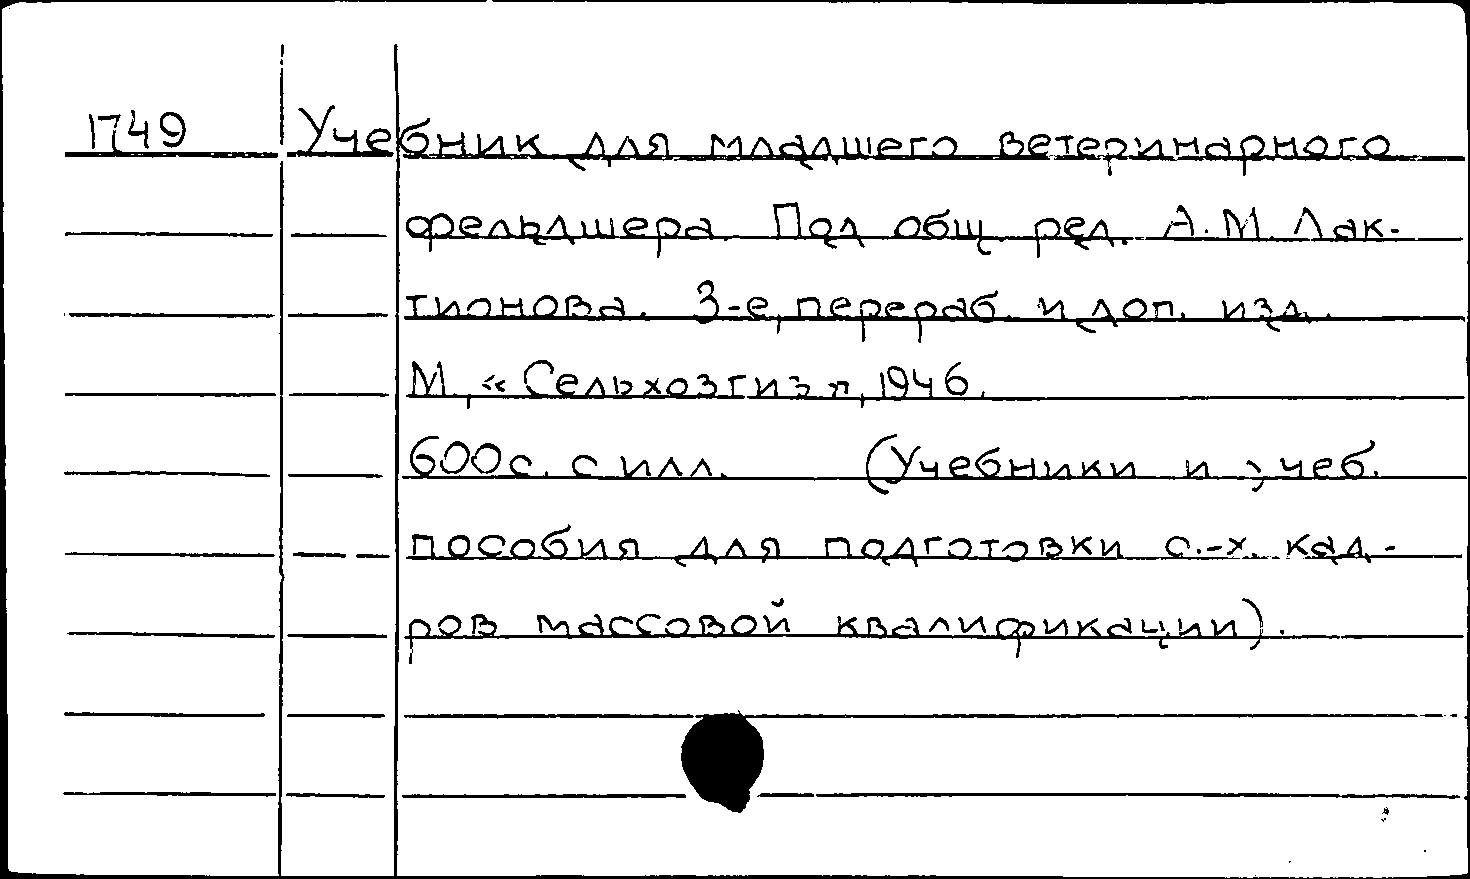 1749 Учебник для младшего ветеринарного
фельдшера. Под общ. ред. А.М. Лак-
тионова. 3-е, перераб. и доп. изд.
М., «Сельхозгиз», 1946.
600с. с илл. (Учебники и учеб.
пособия для подготовки с.-х. кад-
ров массовой квалификации).